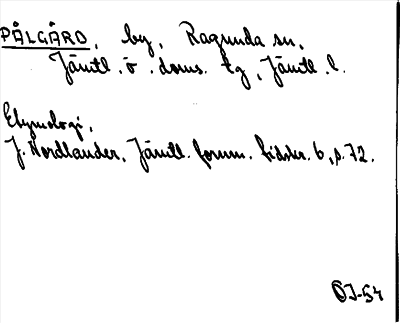 PÅLGÅRD, by, Ragunda sn,
Jämtl. ö. doms. tg, Jämtl. l.
Etymologi,
J. Nordlander, Jämtl. fornm. tidskr. 6, s. 72.
ÖJ-54